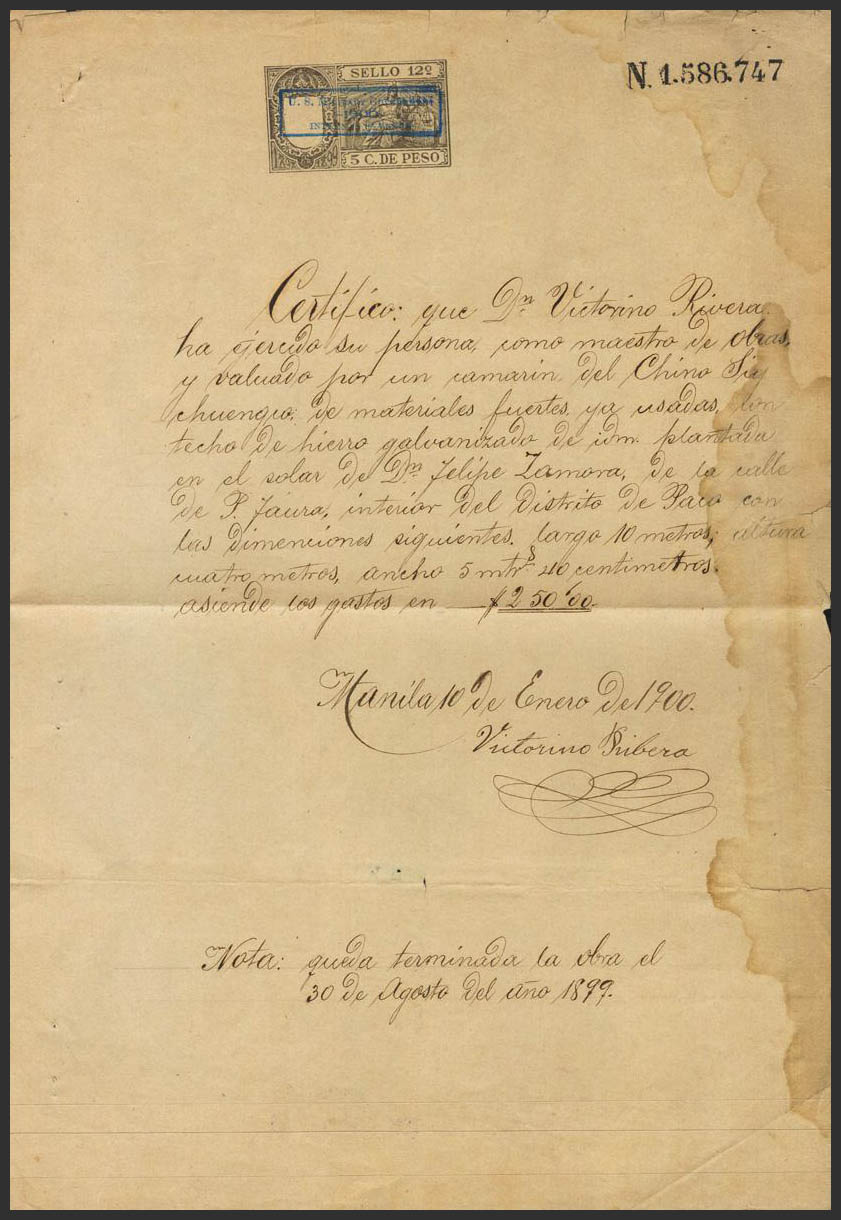 SELLO 12º
N. 1.586.747
U. S. MILITARY GOVERNMENT
5 C. DE PESO
Certifico: que Dn Victorino Rivera.
ha ejercido su persona, como maestro de obras,
y valuado por un camarin del Chino Siy
chuengco, de materiales fuertes, ya usadas, con
techo de hierro galvanizado de idm. plantada
en el solar de Dn Felipe Zamora, de la calle
de P. Faura, interior del distrito de Paco con
las dimenciones siguientes, largo 10 metros, altura
cuatro metros, ancho 5 mtrs 40 centimetros.
asiende los gastos en $ 250'00.
Manila 10 de Enero de 1900.
Victorino Ribera
Nota: queda terminada la obra el
30 de Agosto del año 1899.